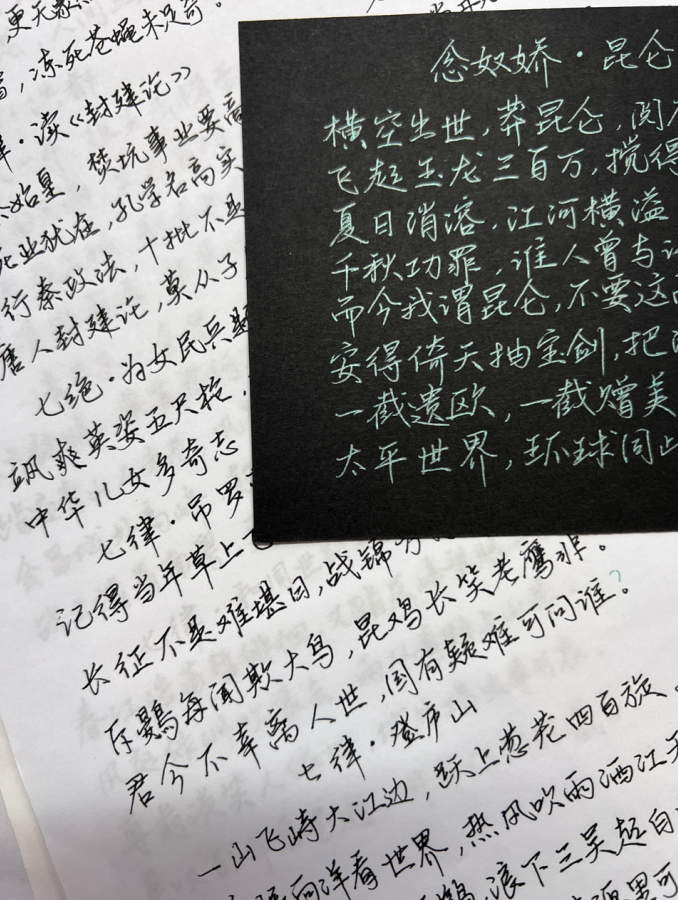 更天
，冻死苍蝇未足奇。
·读《封建论》
始皇，焚坑事业要商
业犹在，孔学名高实
行秦政法，十批不是
唐人封建论，莫从子
七绝·为女民兵题
飒爽英姿五尺枪，
中华儿女多奇志
七律·吊罗
记得当年草上飞
长征不是难堪日，战锦方
斥鷃每闻欺大鸟，昆鸡长笑老鹰非。
君今不幸离人世，国有疑难可问谁？
七律·登庐山
一山飞峙大江边，跃上葱茏四百旋。
向洋看世界，热风吹雨洒江天
鹤，浪下三吴起白
里可
念奴娇·昆仑
横空出世，莽昆仑，阅
飞起玉龙三百万，搅得
夏日消溶，江河横溢
千秋功罪，谁人曾与评
而今我谓昆仑，不要这高
安得倚天抽宝剑，把
一截遗欧，一截赠美
太平世界，环球同此